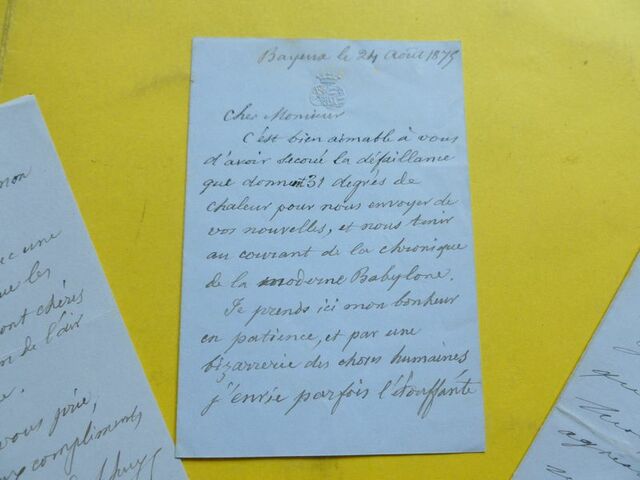 Bayena le 24 Août 1875
Cher Monsieur
C'est bien aimable à vous
d'avoir secoué la défaillance
que donnent 31 degrés de
chaleur pour nous envoyer de
vos nouvelles, et nous tenir
au courant de la chronique
de la moderne Babylone.
Je prends ici mon bonheur
en patience, et par une
bizarrerie des choses humaines
j'envie parfois l'étouffante
mon
une
que les
sont chères
de l'air
vous prie,
compliments